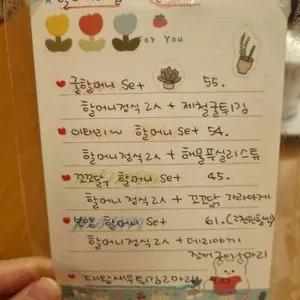 For You
굴할머니 Set 55.
할머니정식 2人 + 제철굴튀김
이태리 할머니 Set 54.
할머니정식 2人 + 해물푸실리스튜
꼬꼬닭 할머니 Set 45.
할머니정식 2人 + 꼬꼬닭 가라아게
보양 할머니 Set 61.
할머니정식 2人 + 데리야끼
장어구이 한마리
대왕새우튀김 2마리 9.0